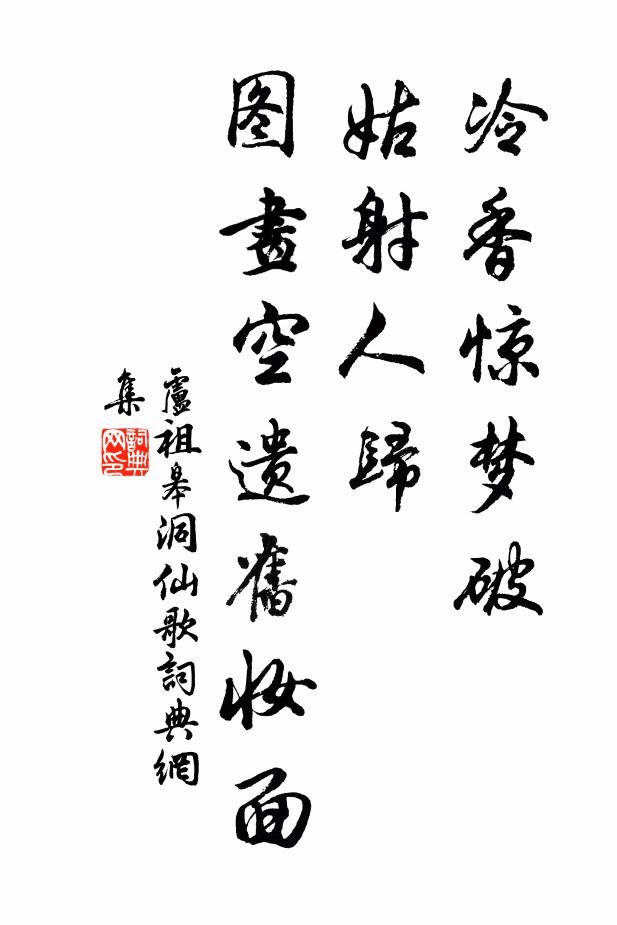 冷香惊梦破
姑射人歸
图畫空遗舊妆面
盧祖皋洞仙歌詞典網
集
詞典
网印